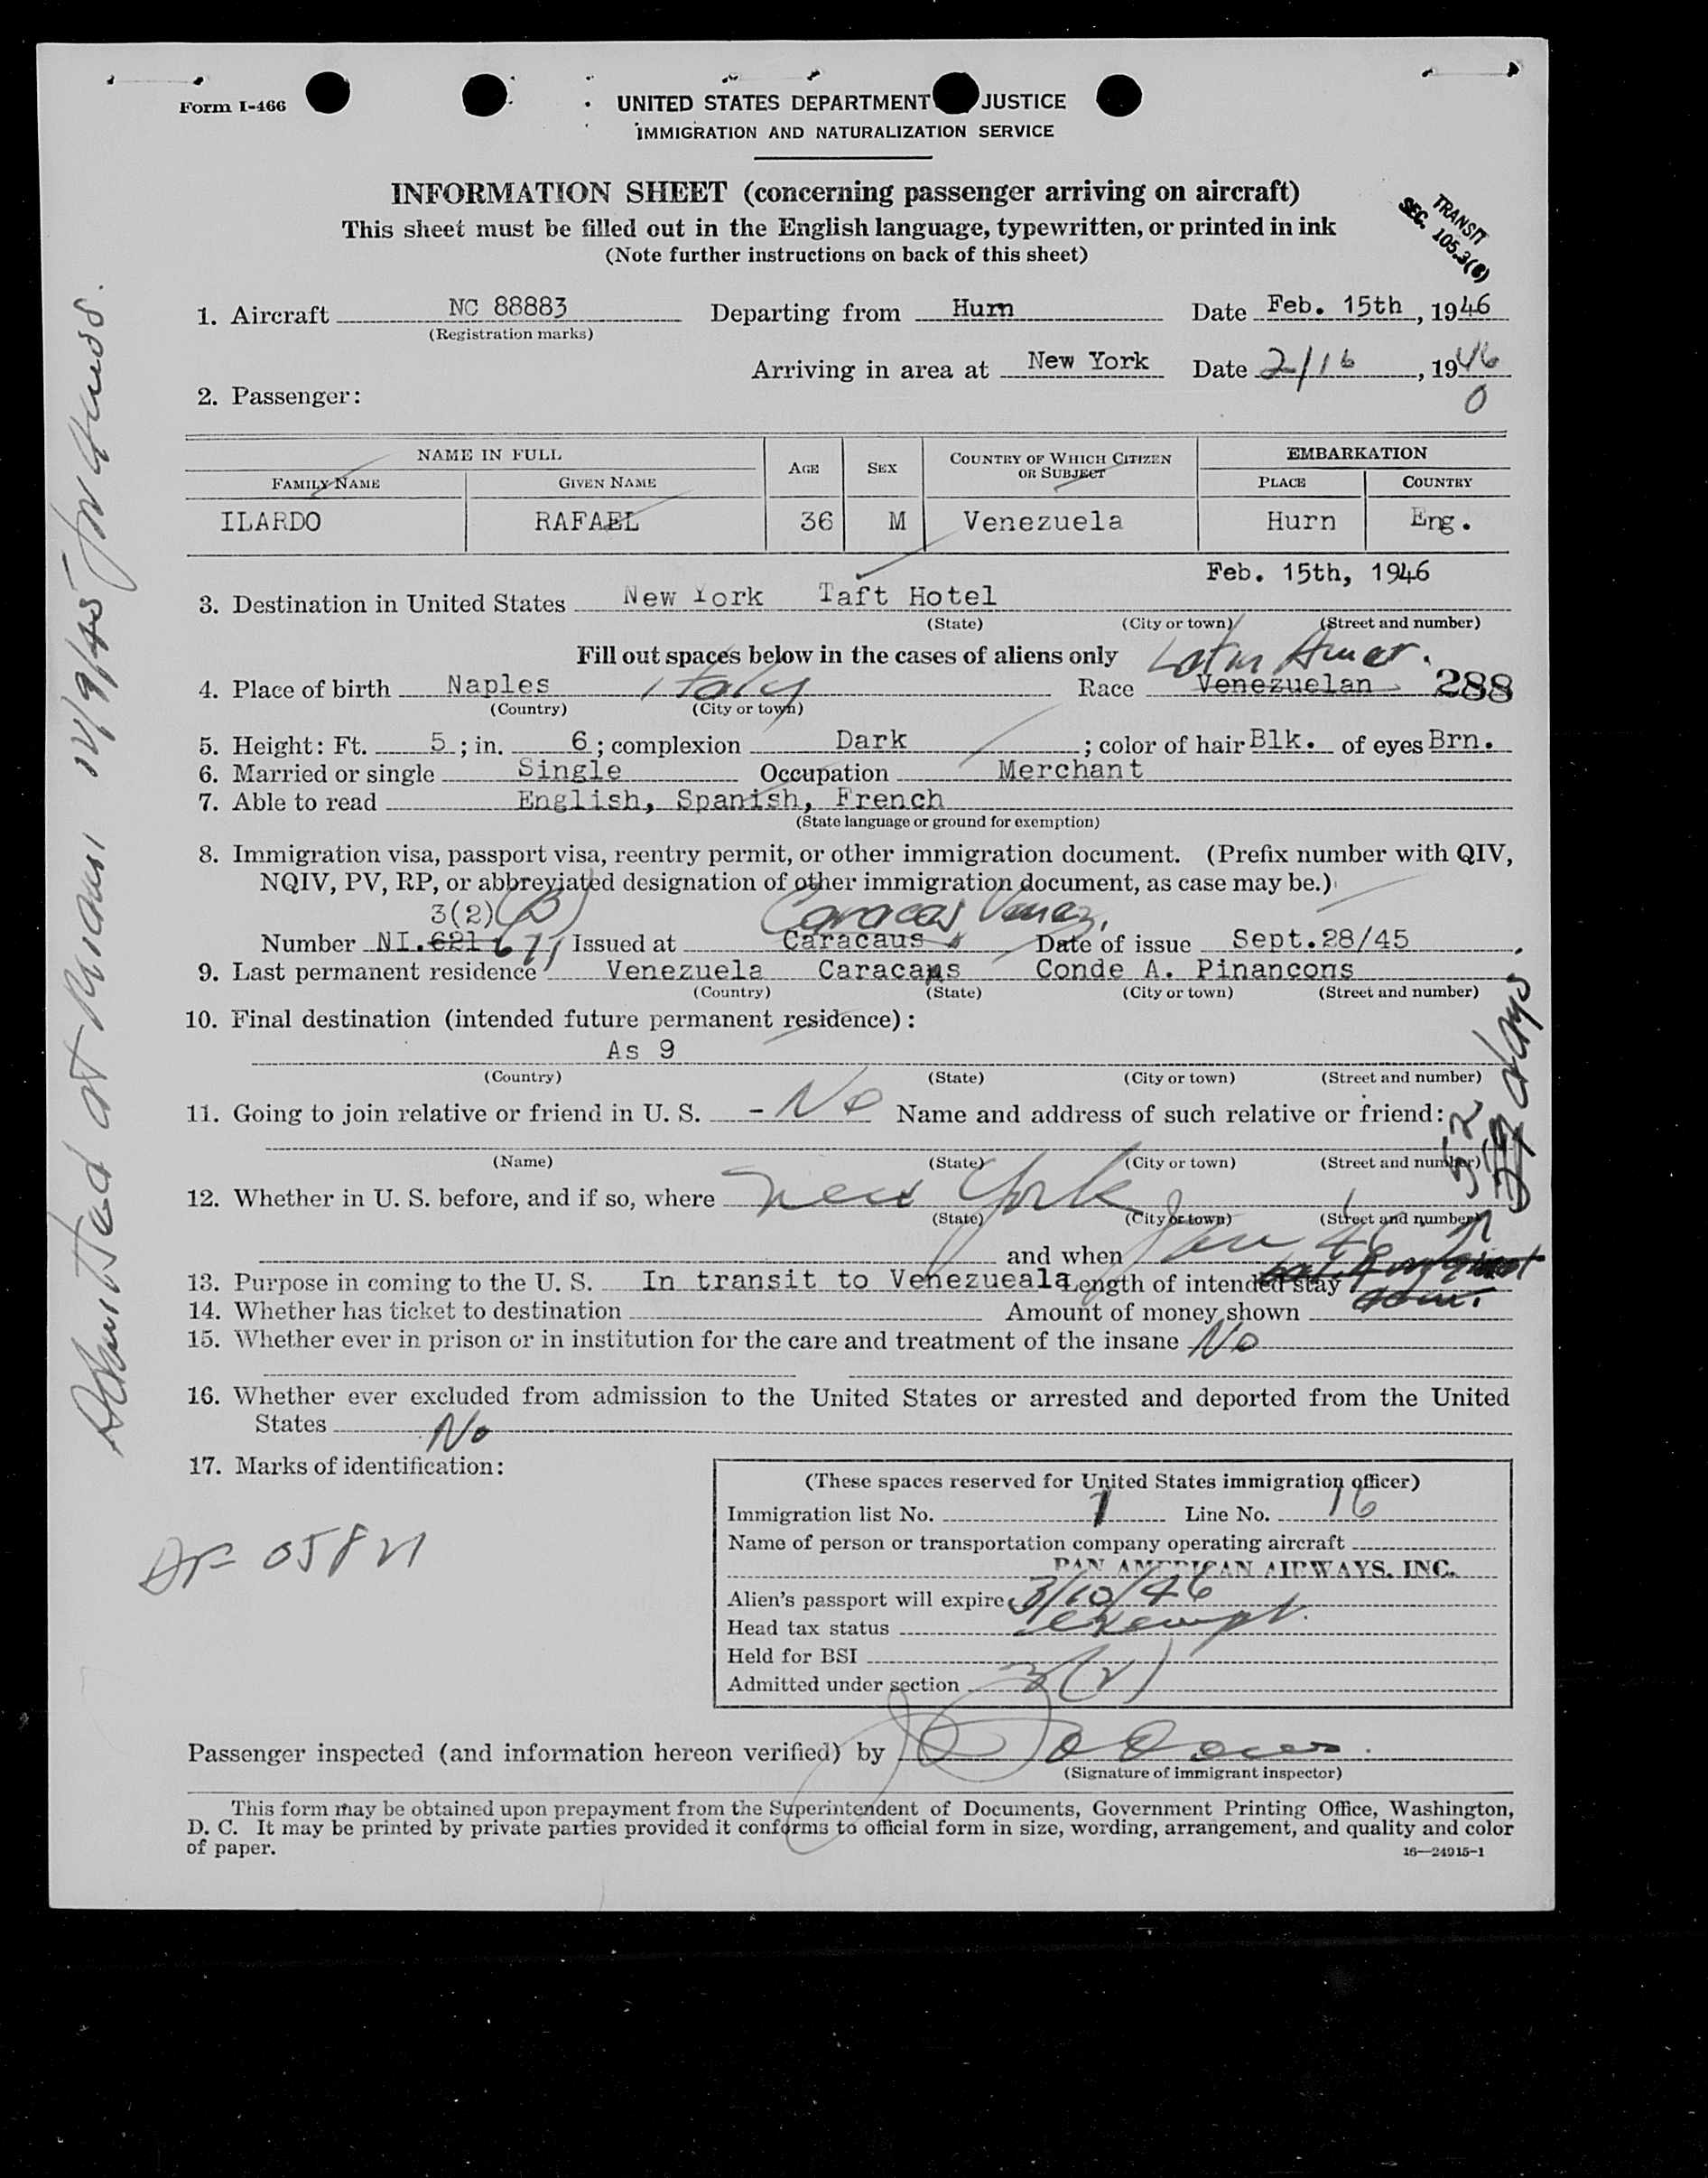 Form I-466
UNITED STATES DEPARTMENT JUSTICE
IMMIGRATION AND NATURALIZATION SERVICE
INFORMATION SHEET (concerning passenger arriving on aircraft)
This sheet must be filled out in the English language, typewritten, or printed in ink
(Note further instructions on back of this sheet)
TRANSIT
SEC. 105.3(B)
1. Aircraft NC 88883 Departing from Hurn Date Feb. 15th, 1946
(Registration marks)
Arriving in area at New York Date 2/16, 1946
2. Passenger: 0
NAME IN FULL AGE SEX COUNTRY OF WHICH CITIZEN OR SUBJECT EMBARKATION
FAMILY NAME GIVEN NAME PLACE COUNTRY
ILARDO RAFAEL 36 M Venezuela Hurn Eng.
Feb. 15th, 1946
3. Destination in United States New York Taft Hotel
(State) (City or town) (Street and number)
Fill out spaces below in the cases of aliens only Latin Amer.
4. Place of birth Naples Italy Race Venezuelan 288
(Country) (City or town)
5. Height: Ft. 5; in. 6; complexion Dark; color of hair Blk. of eyes Brn.
6. Married or single Single Occupation Merchant
7. Able to read English, Spanish, French
(State language or ground for exemption)
8. Immigration visa, passport visa, reentry permit, or other immigration document. (Prefix number with QIV,
NQIV, PV, RP, or abbreviated designation of other immigration document, as case may be.)
3(2)(B) Caracas Venez.
Number NI. 621 671 Issued at Caracaus Date of issue Sept.28/45
9. Last permanent residence Venezuela Caracas Conde A. Pinancons
(Country) (State) (City or town) (Street and number)
10. Final destination (intended future permanent residence):
As 9
(Country) (State) (City or town) (Street and number)
11. Going to join relative or friend in U. S. - No Name and address of such relative or friend:
(Name) (State) (City or town) (Street and number)
12. Whether in U. S. before, and if so, where New York
(State) (City or town) (Street and number)
and when Jan 46
13. Purpose in coming to the U. S. In transit to Venezueala Length of intended stay
days
14. Whether has ticket to destination Amount of money shown
15. Whether ever in prison or in institution for the care and treatment of the insane No
16. Whether ever excluded from admission to the United States or arrested and deported from the United
States No
17. Marks of identification:
(These spaces reserved for United States immigration officer)
Immigration list No. 1 Line No. 16
Name of person or transportation company operating aircraft
PAN AMERICAN AIRWAYS, INC.
Alien's passport will expire 3/10/46
Head tax status exempt.
Held for BSI
Admitted under section 3(2)
Passenger inspected (and information hereon verified) by
(Signature of immigrant inspector)
This form may be obtained upon prepayment from the Superintendent of Documents, Government Printing Office, Washington,
D. C. It may be printed by private parties provided it conforms to official form in size, wording, arrangement, and quality and color
of paper.
16—24915-1
Admitted at Miami 12/9/45 for